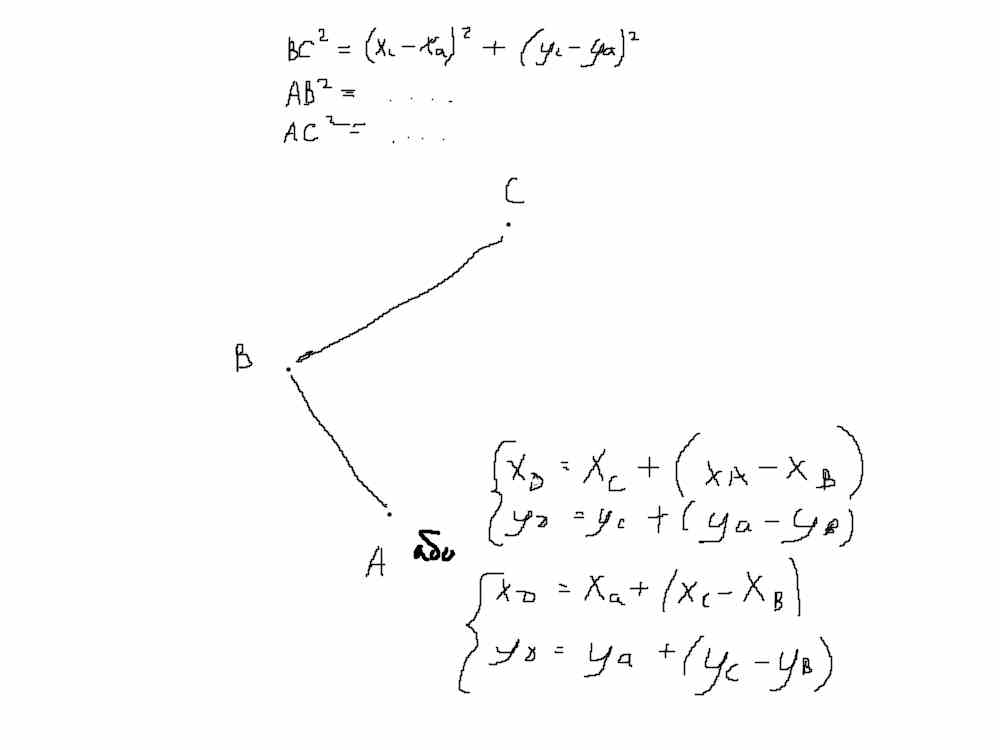 BC² = (x_c - x_a)² + (y_c - y_a)²
AB² = . . . .
AC² = . . . .
C
B
x_D = x_C + (x_A - x_B)
y_D = y_c + (y_a - y_B)
A або
x_D = x_a + (x_c - x_B)
y_D = y_a + (y_C - y_B)